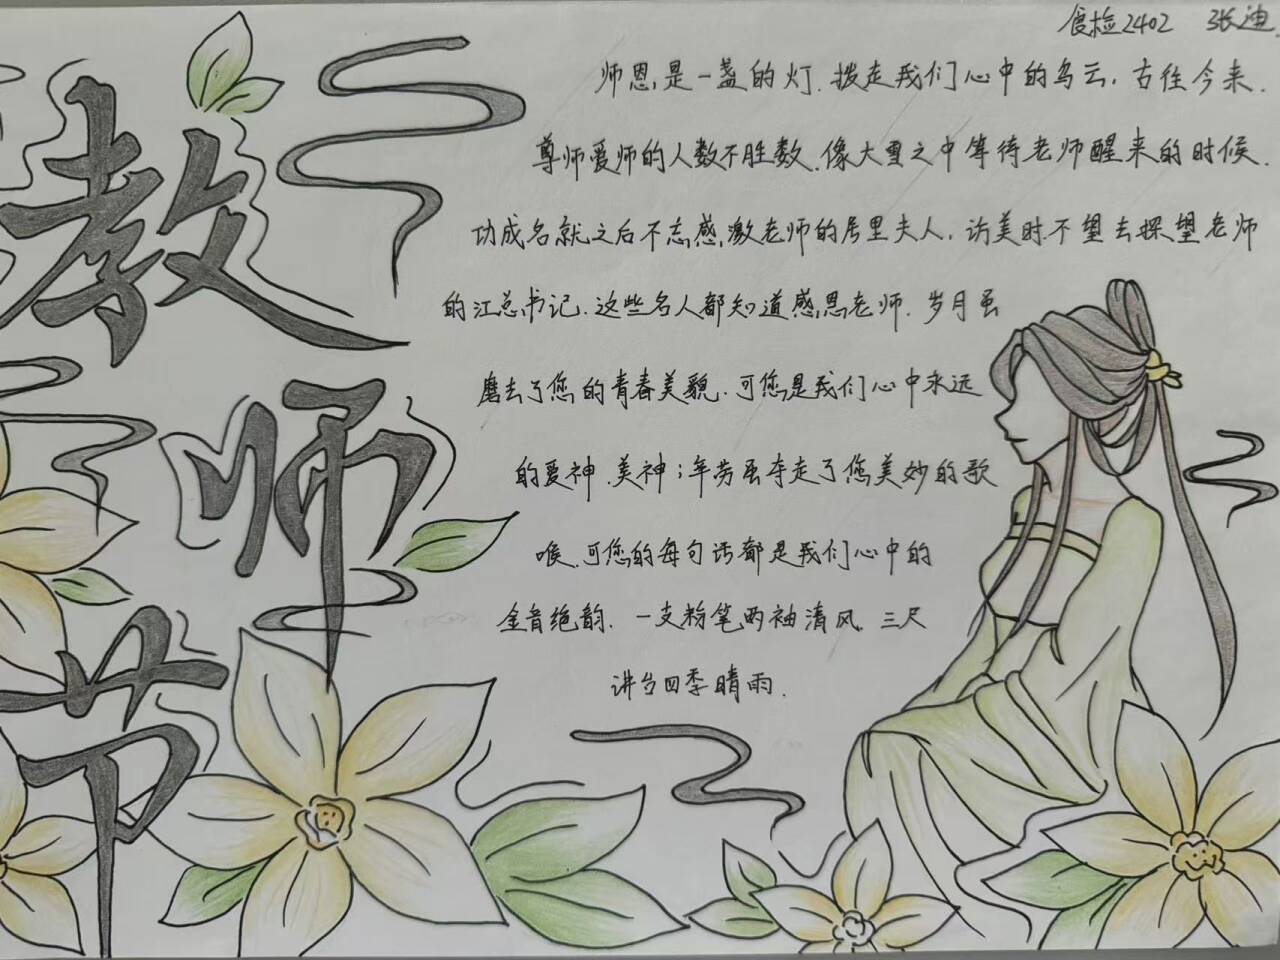 教师节
食检2402 张迪.
师恩,是一盏的灯.拨走我们心中的乌云.古往今来.
尊师爱师的人数不胜数.像大雪之中等待老师醒来的时候.
功成名就之后不忘感激老师的居里夫人.访美时不望去探望老师
的江总书记.这些名人都知道感恩老师.岁月虽
磨去了您的青春美貌.可您是我们心中永远
的爱神.美神;年劳虽夺走了您美妙的歌
喉.可您的每句话都是我们心中的
金音绝韵.一支粉笔两袖清风.三尺
讲台四季晴雨.